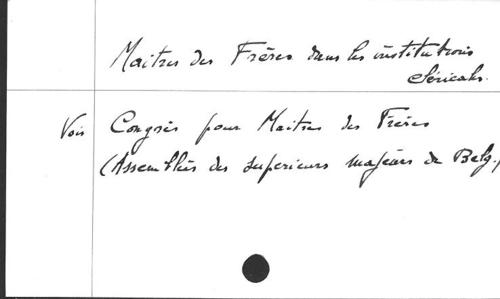 Maitres des Frères dans les institutions
cléricales.
Voir Congrès pour Maitres des Frères
(Assemblées des superieurs majeurs de Belg.)